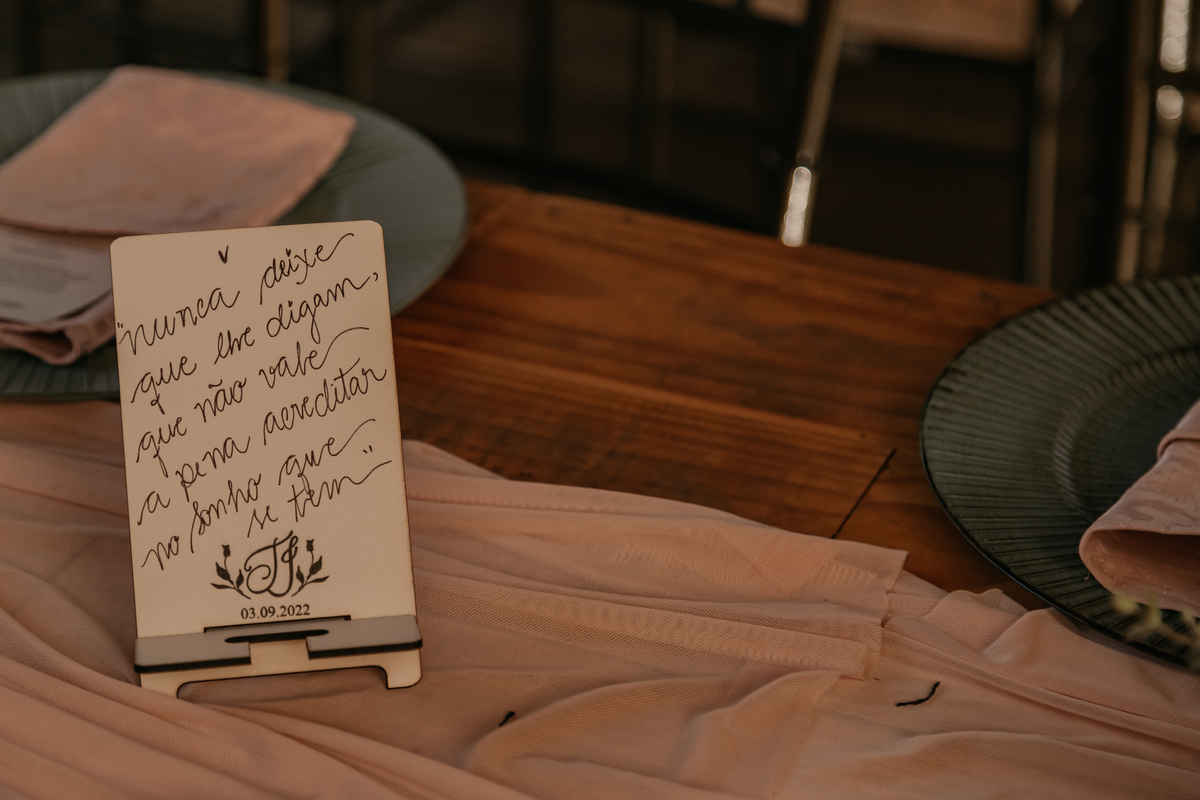 "nunca deixe
que lhe digam,
que não vale
a pena acreditar
no sonho que
se tem"
TJ
03.09.2022